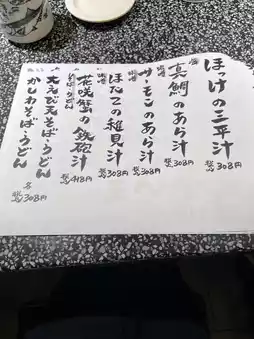 ほっけの三平汁
308円
真鯛のあら汁
308円
味噌
サーモンのあら汁
308円
味噌
ほたての稚貝汁
308円
味噌
花咲蟹の鉄砲汁
418円
大えび天そば・うどん
かしわそば・うどん
308円